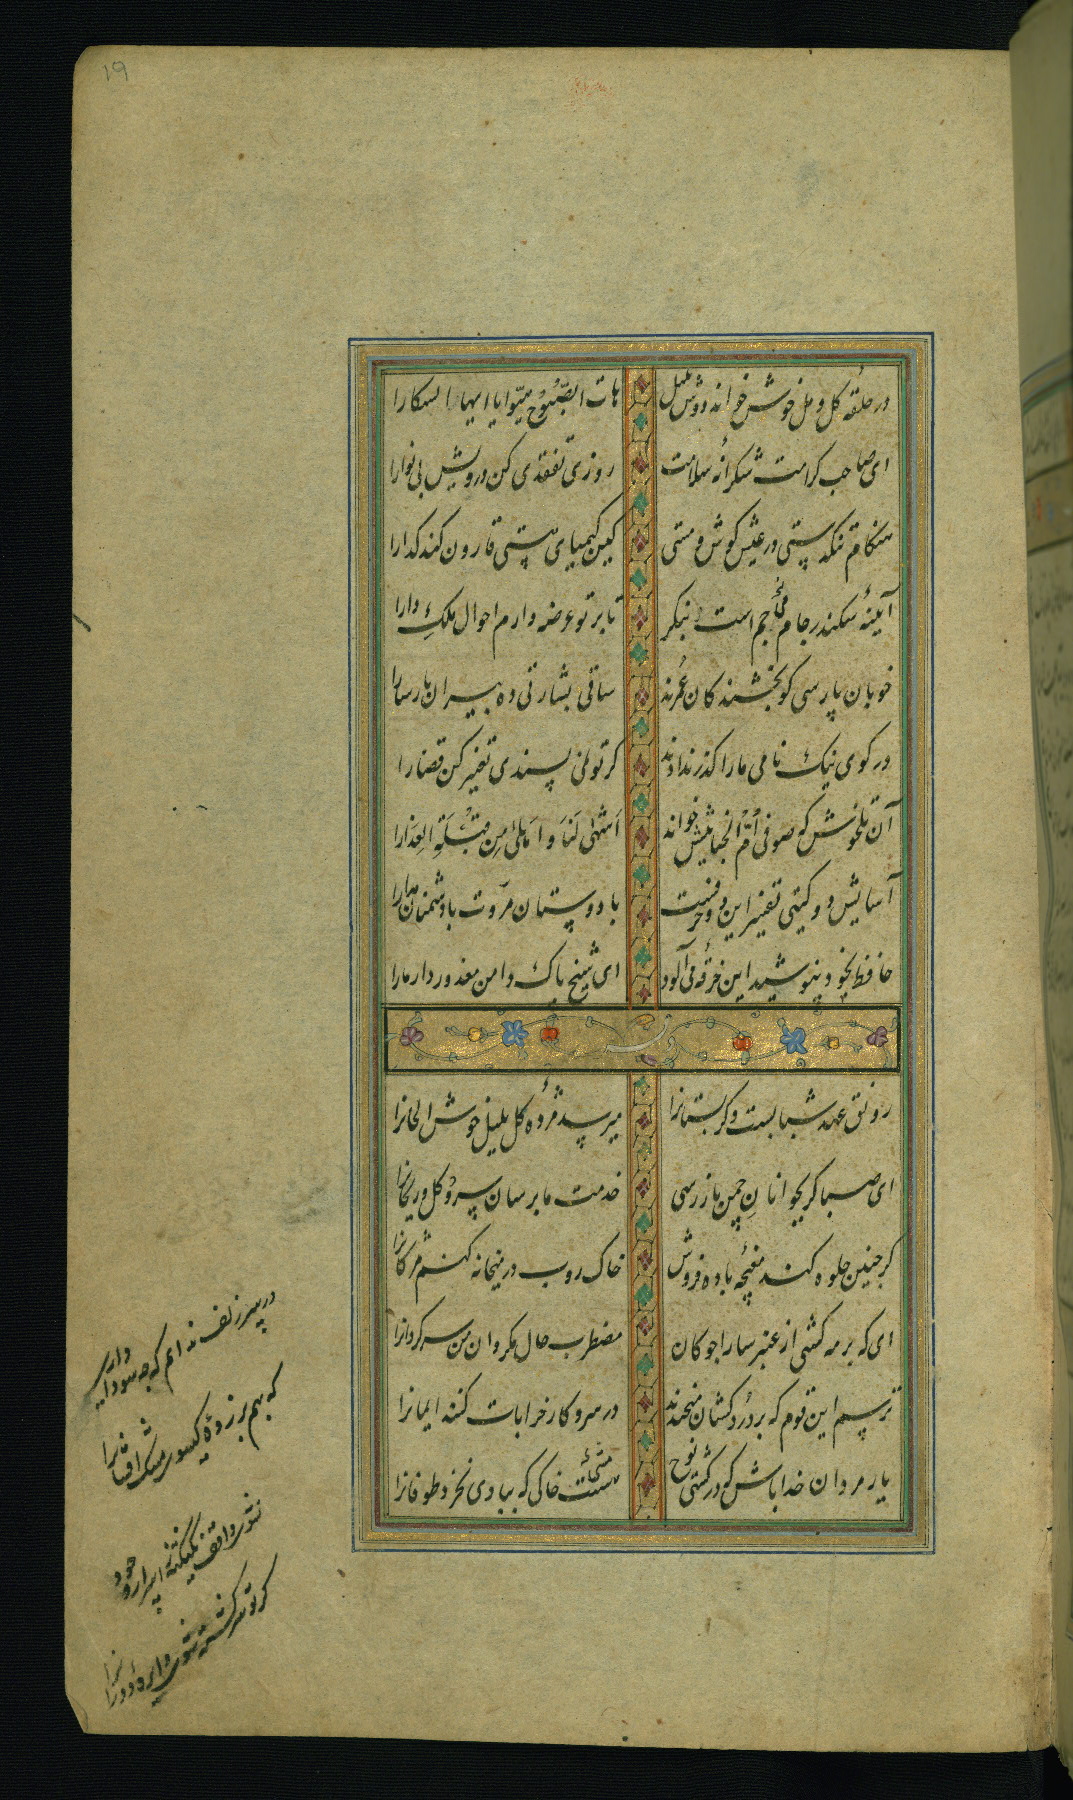 ۱۹
در حلقه کل و مل خوش خواند دوش بلبل
هات الصّبُوح هیّوا یا ایها السکارا
ای صاحب کرامت شکرانهٔ سلامت
روزی تفقدی کن درویش بی نوارا
هنکام تنکدستی در عیش کوش و مستی
کین کیمیای هستی قارون کند کدارا
آیینهٔ سکندر جام می جم است بنکر
تا بر تو عرضه دارم احوال ملک دارا
خوبان پارسی کو بخشندکان عمرند
ساقی بشارتی ده پیران پارسارا
در کوی نیک نامی مارا کذر ندادند
کر تو نمی پسندی تغییر کن قضارا
آن تلخوش که صوفی اُمّ الخبائثش خواند
اَشهیٰ لَنَا و اَحلیٰ مِن قُبْلَةِ العِذارا
آسایش دو کیتی تفسیر این دو حرفست
با دوستان مروّت با دشمنان مدارا
حافظ بخود نپوشید این خرقهٔ می آلود
ای شیخ پاک دامن معذور دار مارا
رونق عهد شبابست دکر بستانرا
میرسد مژدهٔ کل بلبل خوش الحانرا
ای صبا کر بجوانانِ چمن باز رسی
خدمت ما برسان سرو و کل و ریحانرا
کر چنین جلوه کند مغبچهٔ باده فروش
خاک روب در میخانه کنم مژکانرا
ای که بر مه کشی از عنبر سارا چوکان
مضطرب حال مکردان من سرکردانرا
ترسم این قوم که بر دُردکشان میخندند
در سر کار خرابات کنند ایمانرا
یار مردان خدا باش که در کشتی نوح
هست خاکی که بآبی نخرد طوفانرا
در سر زلف ندانم که چه سودا داری
که بهم بر زدهٔ کیسوی مشک افشانرا
نشوی واقف یک نکته ز اسرار وجود
کر تو سرکشته شوی دایرهٔ دورانرا